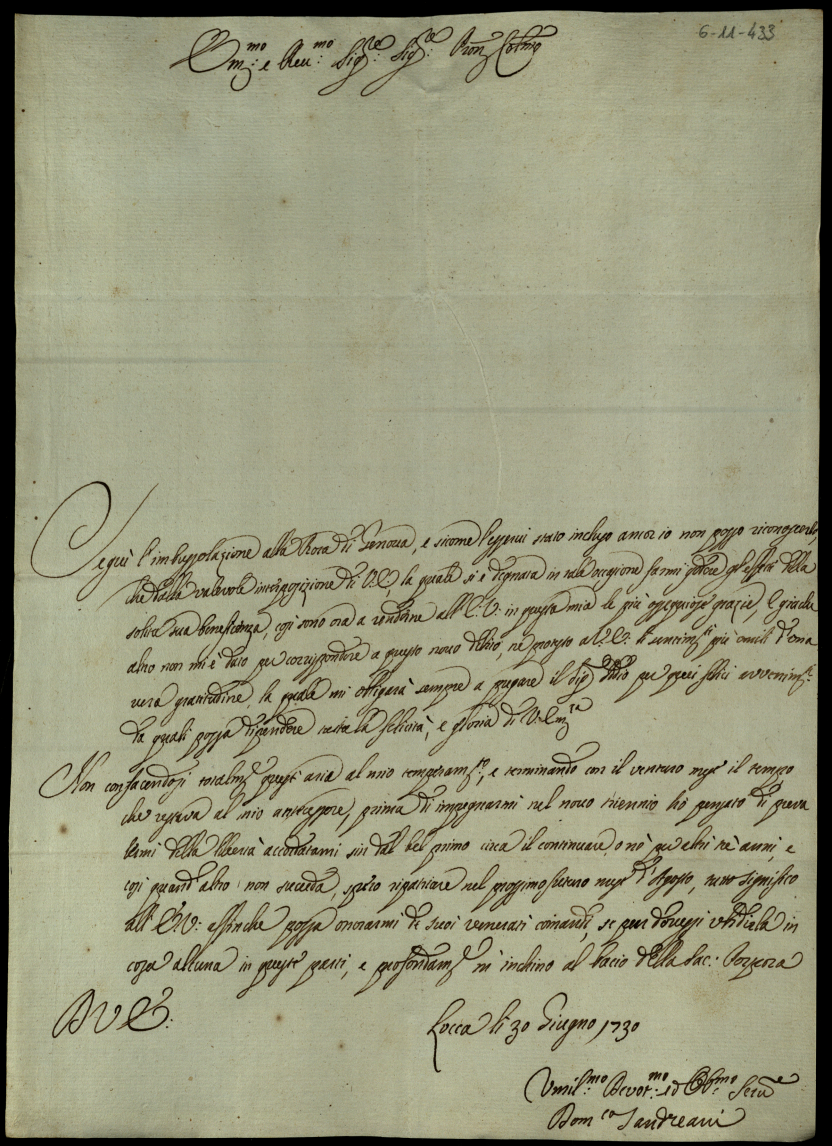 6-11-433
Em:mo e Rev:mo Sig:re Sig:re Pron Colmo
Seguì l'imbussolazione alla Rota di Genova, e sicome l'esservi stato incluso ancor io non posso riconoscerlo,
che dalla valevole interposizione di V.E., la quale si è degnata in tale occasione farmi godere gl'effetti della
solita sua beneficenza, così sono ora a renderne all'E.V. in questa mia le più ossequiose grazie, e giache
altro non mi è dato per corrispondere a questo novo debito, ne protesto a V.E. li sentim:ti più umili d'una
vera gratitudine, la quale mi obligarà sempre a pregare il Sig:r Iddio per quei felici avvenim:ti
da quali possa dipendere tutta la felicità, e gloria di V. Em:za
Non confacendosi totalm:te quest'aria al mio temperam:to, e terminando con il venturo mese il tempo
che restava al mio antecessore, prima di impegnarmi nel novo triennio hò pensato di preva
lermi della libertà accordatami sin dal bel primo circa il continuare, o nò per altri trè anni, e
così quand'altro non succeda, spero ripatriare nel prossimo futuro mese d'Agosto, tutto significo
all'E.V. affinche possa onorarmi di suoi venerati comandi, se pur dovessi ubidirla in
cosa alcuna in queste parti, e profondam:te m'inchino al bacio della Sac: Porpora
D V E:
Lucca li 30 Giugno 1730
Umil:mo Devot:mo ed Obb:mo Serv:e
Dom:co Sandreani